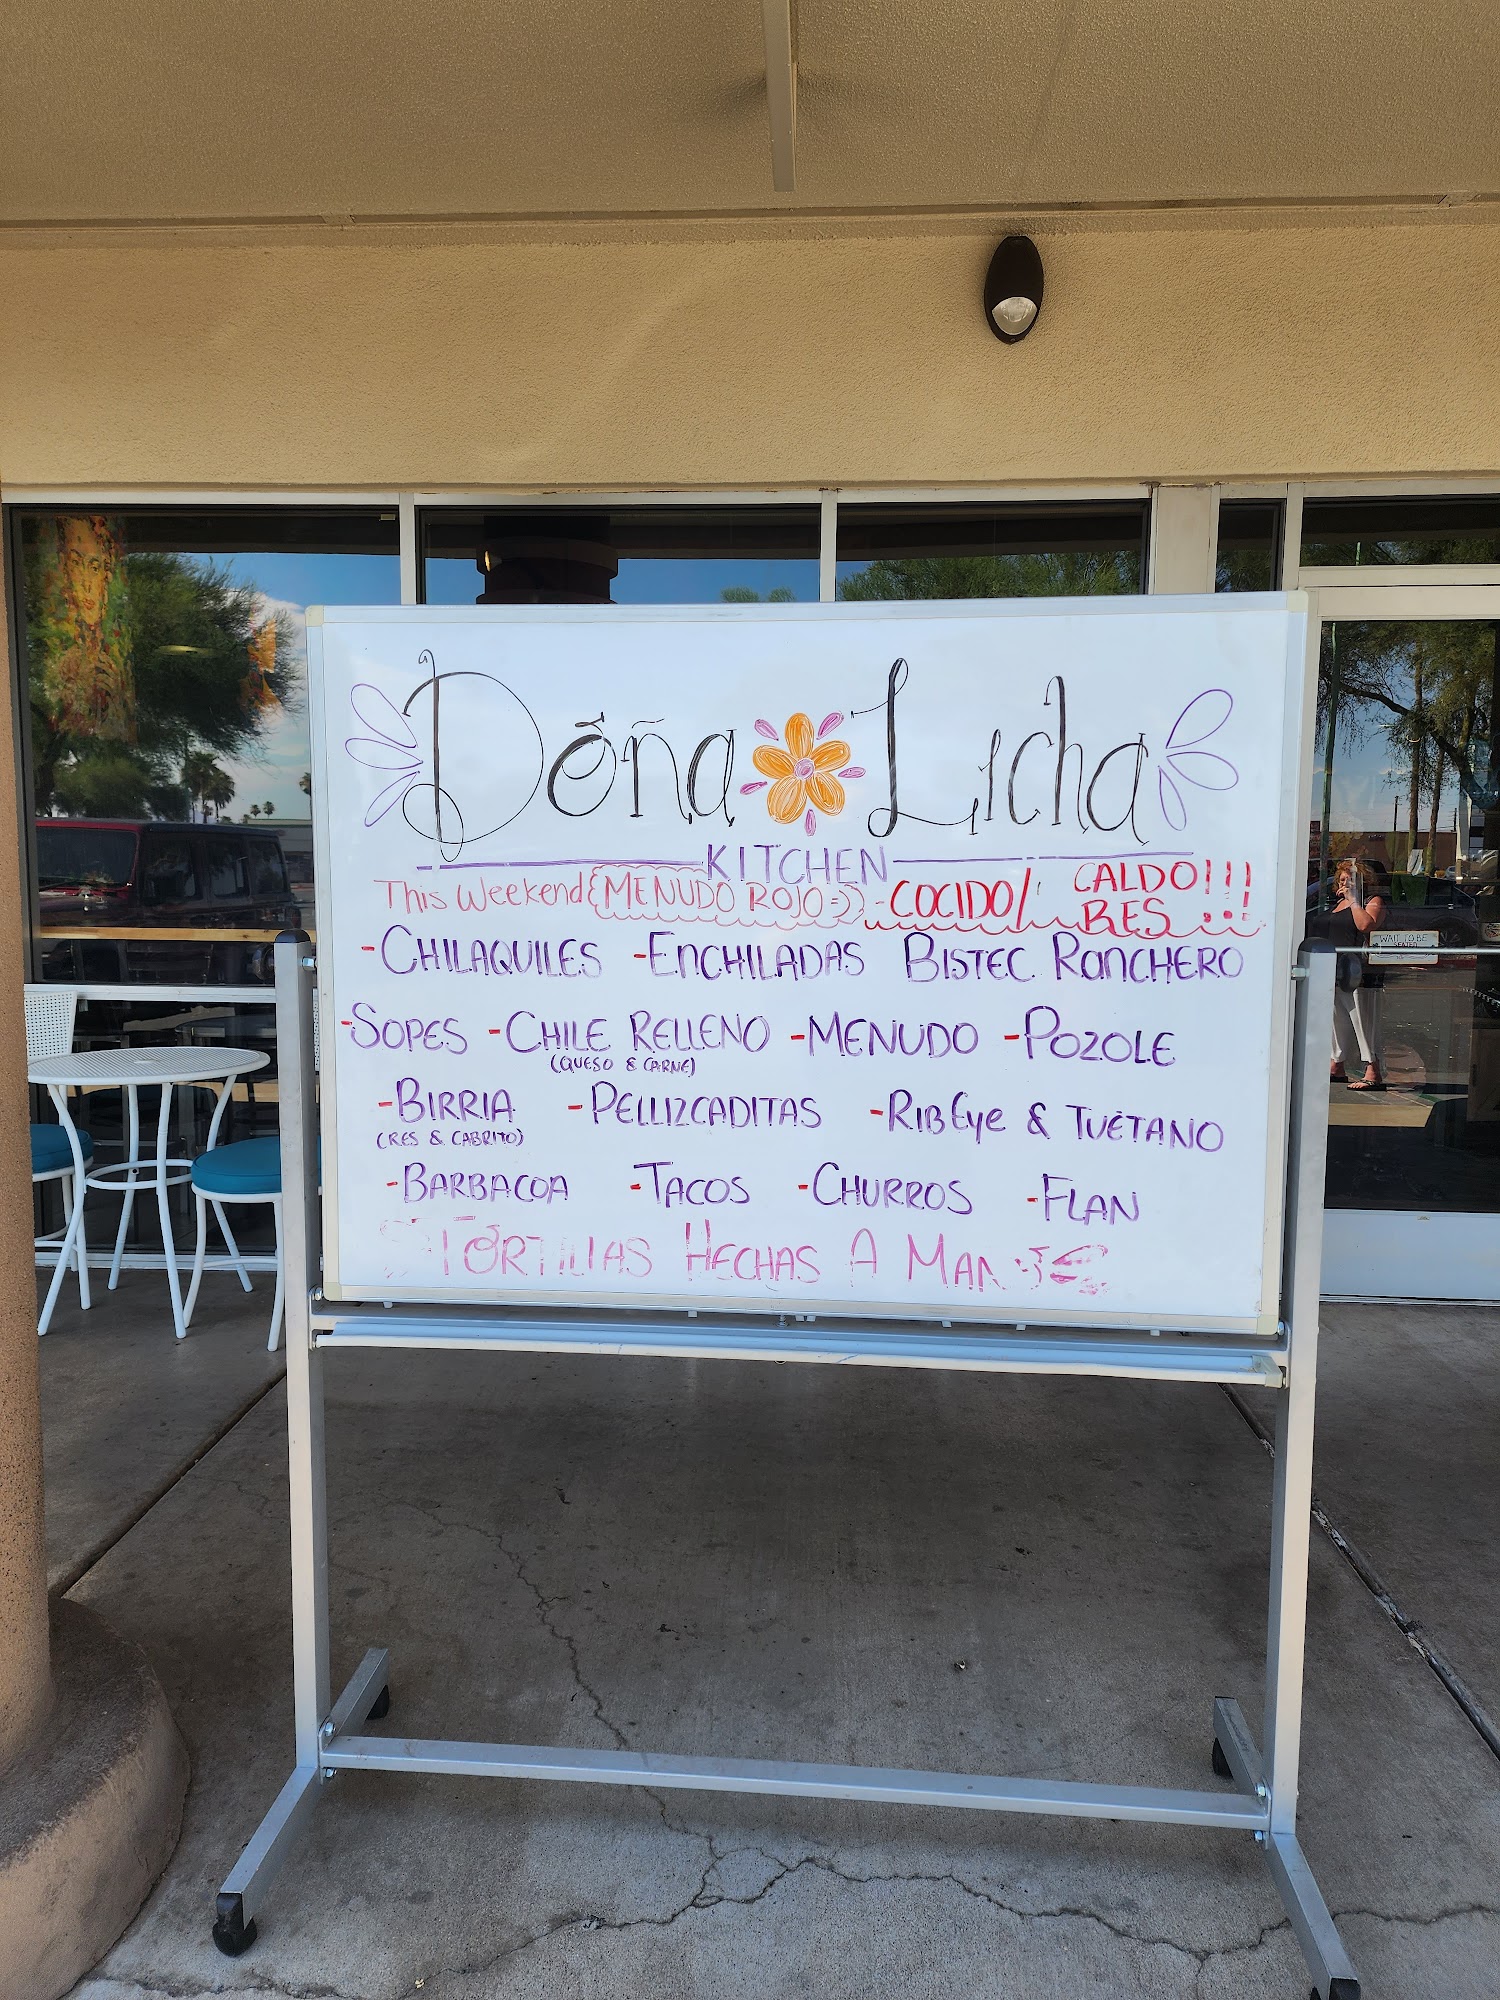 Doña Licha
KITCHEN
This Weekend {MENUDO ROJO=)} -COCIDO/ CALDO!!!
RES
-CHILAQUILES -ENCHILADAS BISTEC RANCHERO
-SOPES -CHILE RELLENO -MENUDO -POZOLE
(QUESO & CARNE)
-BIRRIA -PELLIZCADITAS -RIBEye & TUÉTANO
(RES & CABRITO)
-BARBACOA -TACOS -CHURROS -FLAN
TORTILLAS HECHAS A MANO
WAIT TO BE